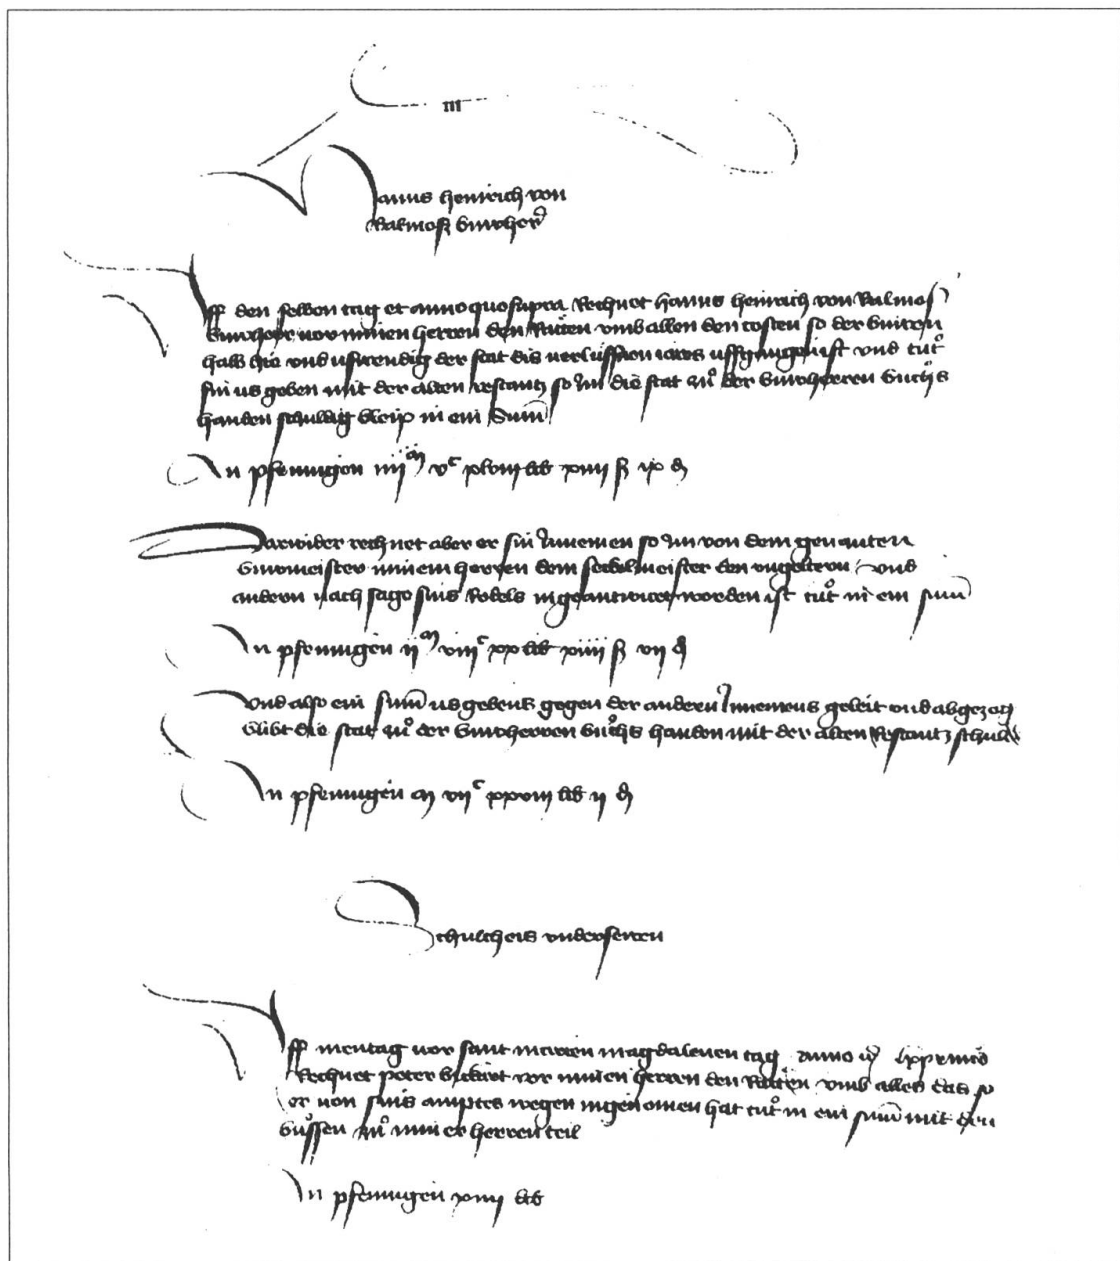 III
Hanns heinrich von
Balmoß buwherr
Uff den selben tag et anno quo supra Rechnet hanns heinrich von Balmoß
buwherr vor minen herren den Räten umb allen den costen so der buiten
halb hie und uswendig der stat dis verlüffnen iares uffgangen ist und tůt
sin us geben mit der alten restantz so Im die stat zů der buwherren buchs
handen schuldig bleip in ein Sum̄
In pfennigen iiijᵐ vᶜ xlviij lib xiiij ß ix d
Darwider rechnet aber er sin Innemen so Im von dem genanten
buwmeister minem herren dem seckelmeister den ungeltern und
andern nach sage sins Rodels ingeantwurt worden ist tůt in ein sum̄
In pfennigen ijᵐ viijᶜ xx lib xiiij ß vij d
Und also ein sum̄ us gebens gegen der andern Innemens geleit und abgezogen
blibt die stat zů der buwherren bůchs handen mit der alten Restantz schuldig
In pfennigen m vijᶜ xxviij lib ij d
Schultheis undersewen
Uff mentag vor sant marien magdalenen tag anno lxxx
Rechnet peter vor minen herren den Räten umb alles das so
er von sins amptes wegen ingenomen hat tůt in ein sum̄ mit den
bůssen zů miner herren teil
In pfennigen xiiij lib